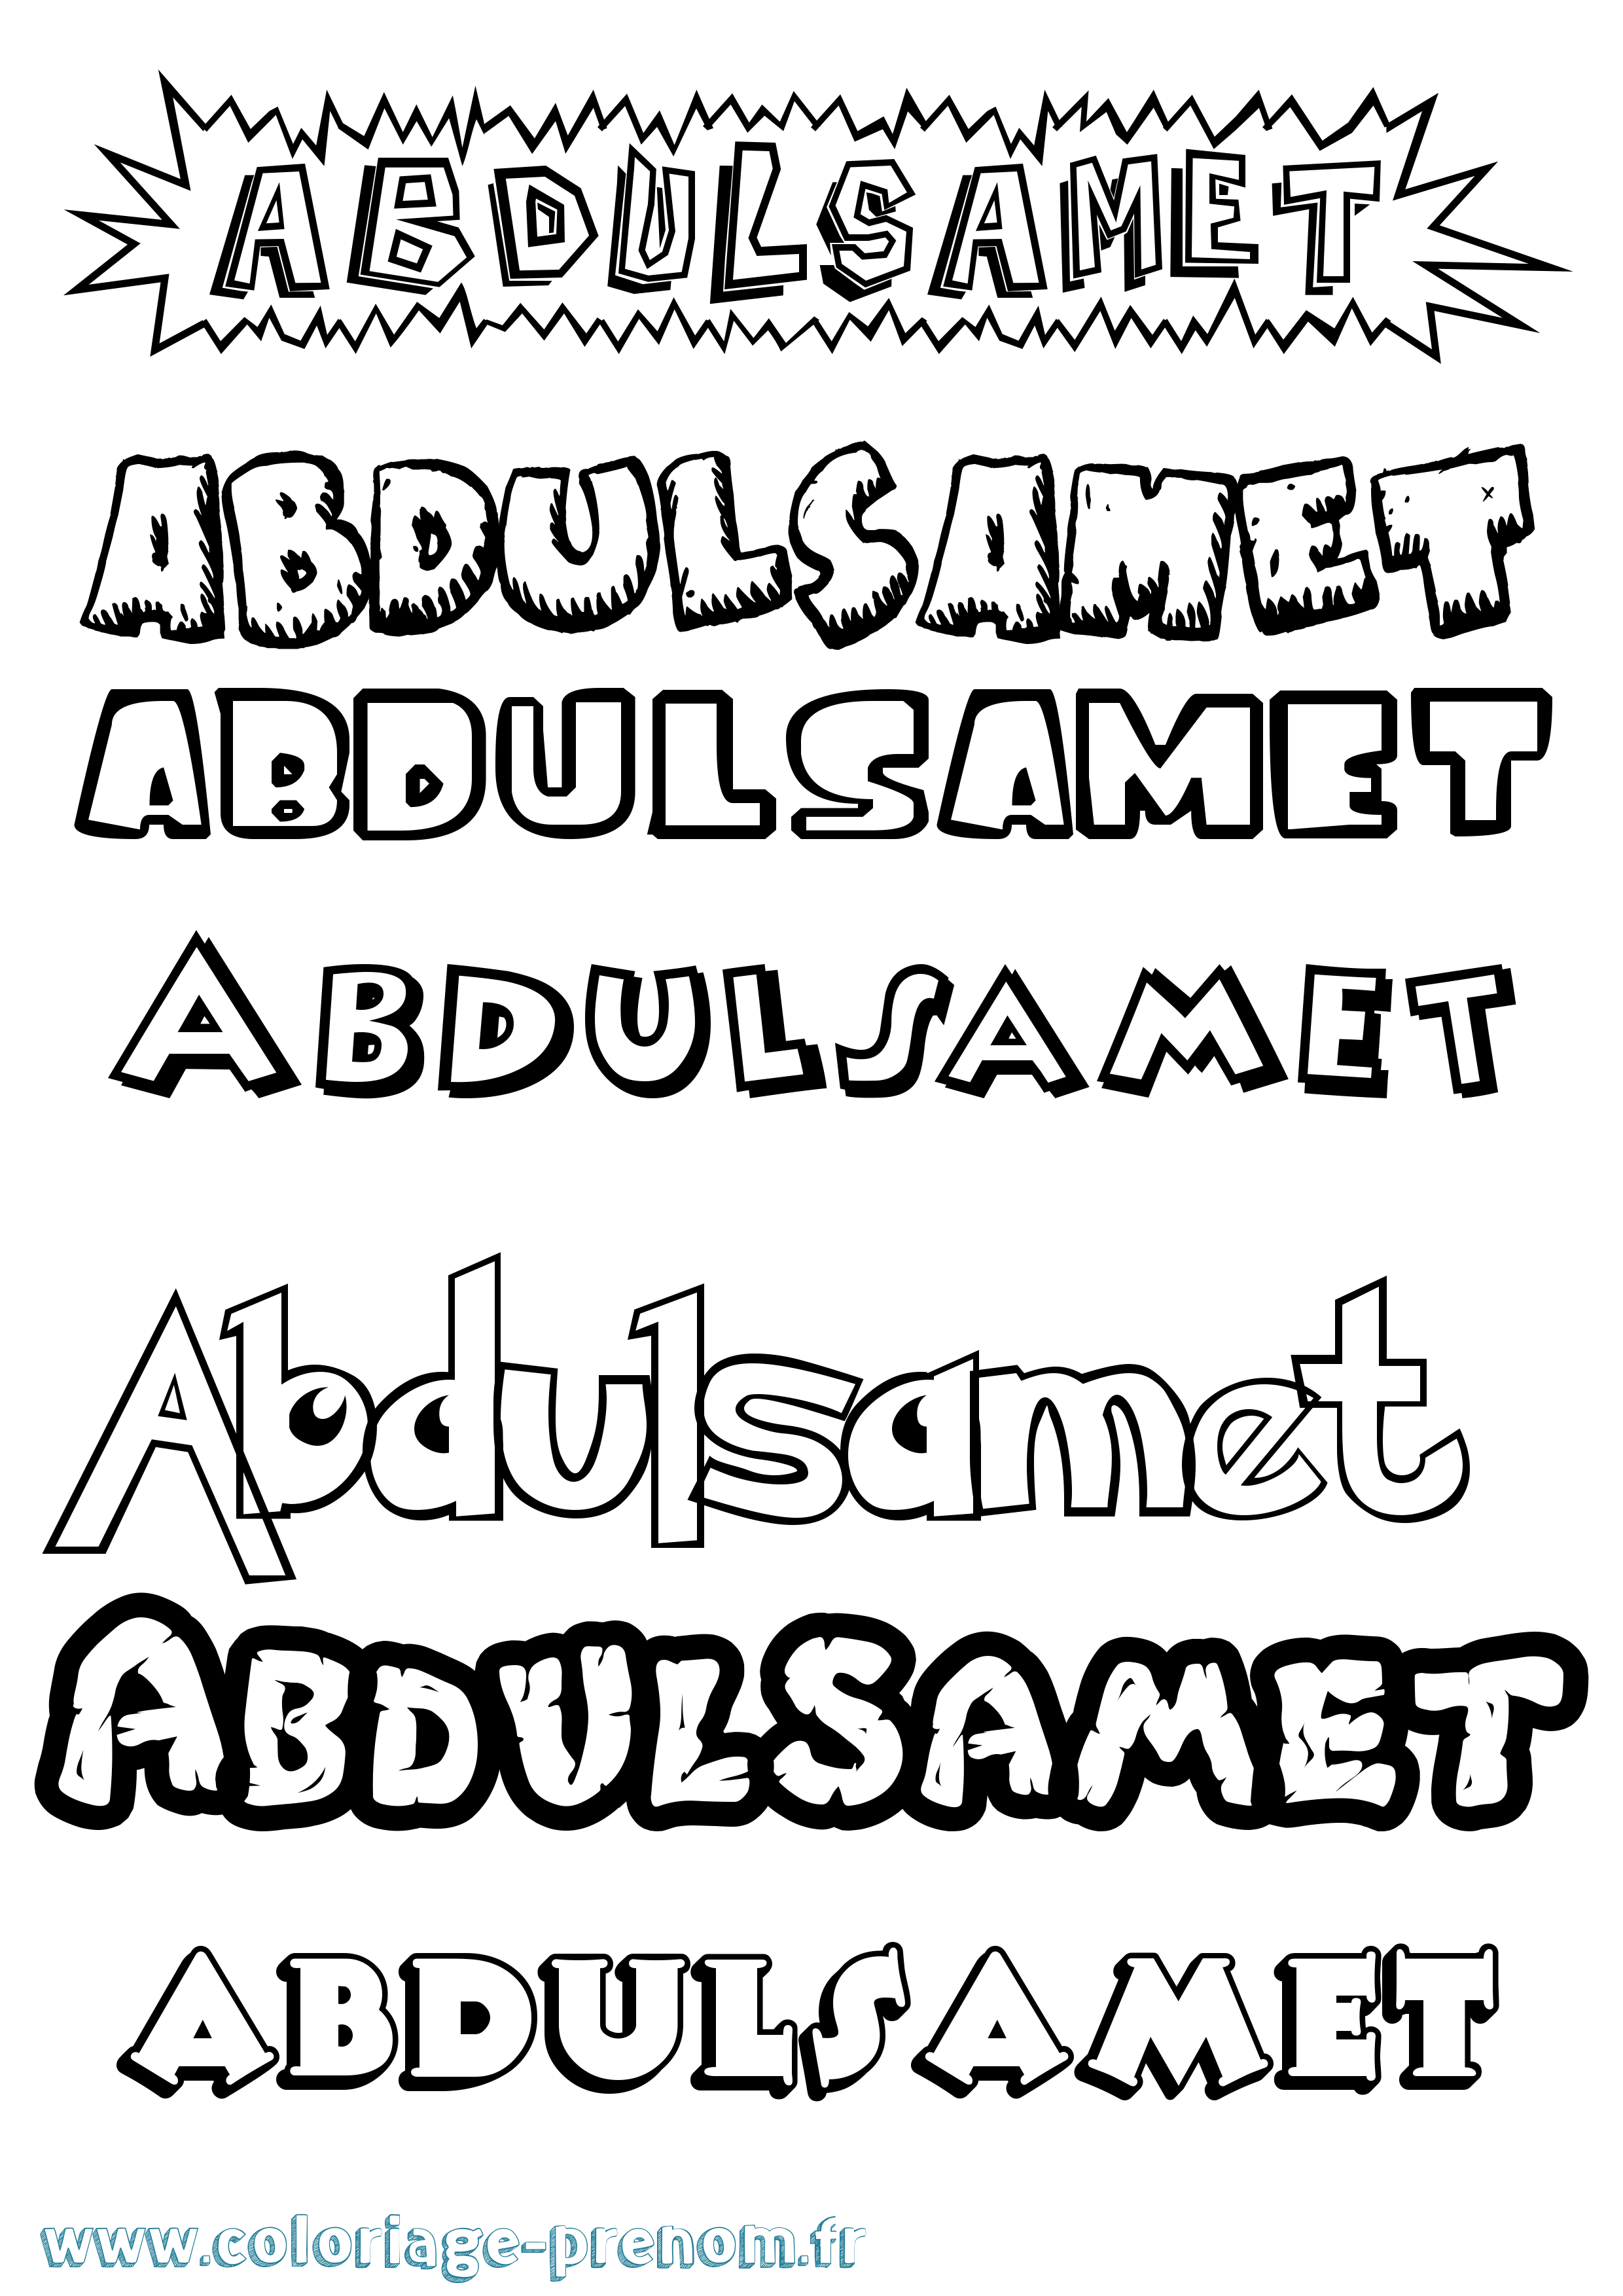 ABDULSAMET
ABDULSAMET
ABDULSAMET
ABDULSAMET
Abdulsamet
ABDULSAMET
ABDULSAMET
www.coloriage-prenom.fr